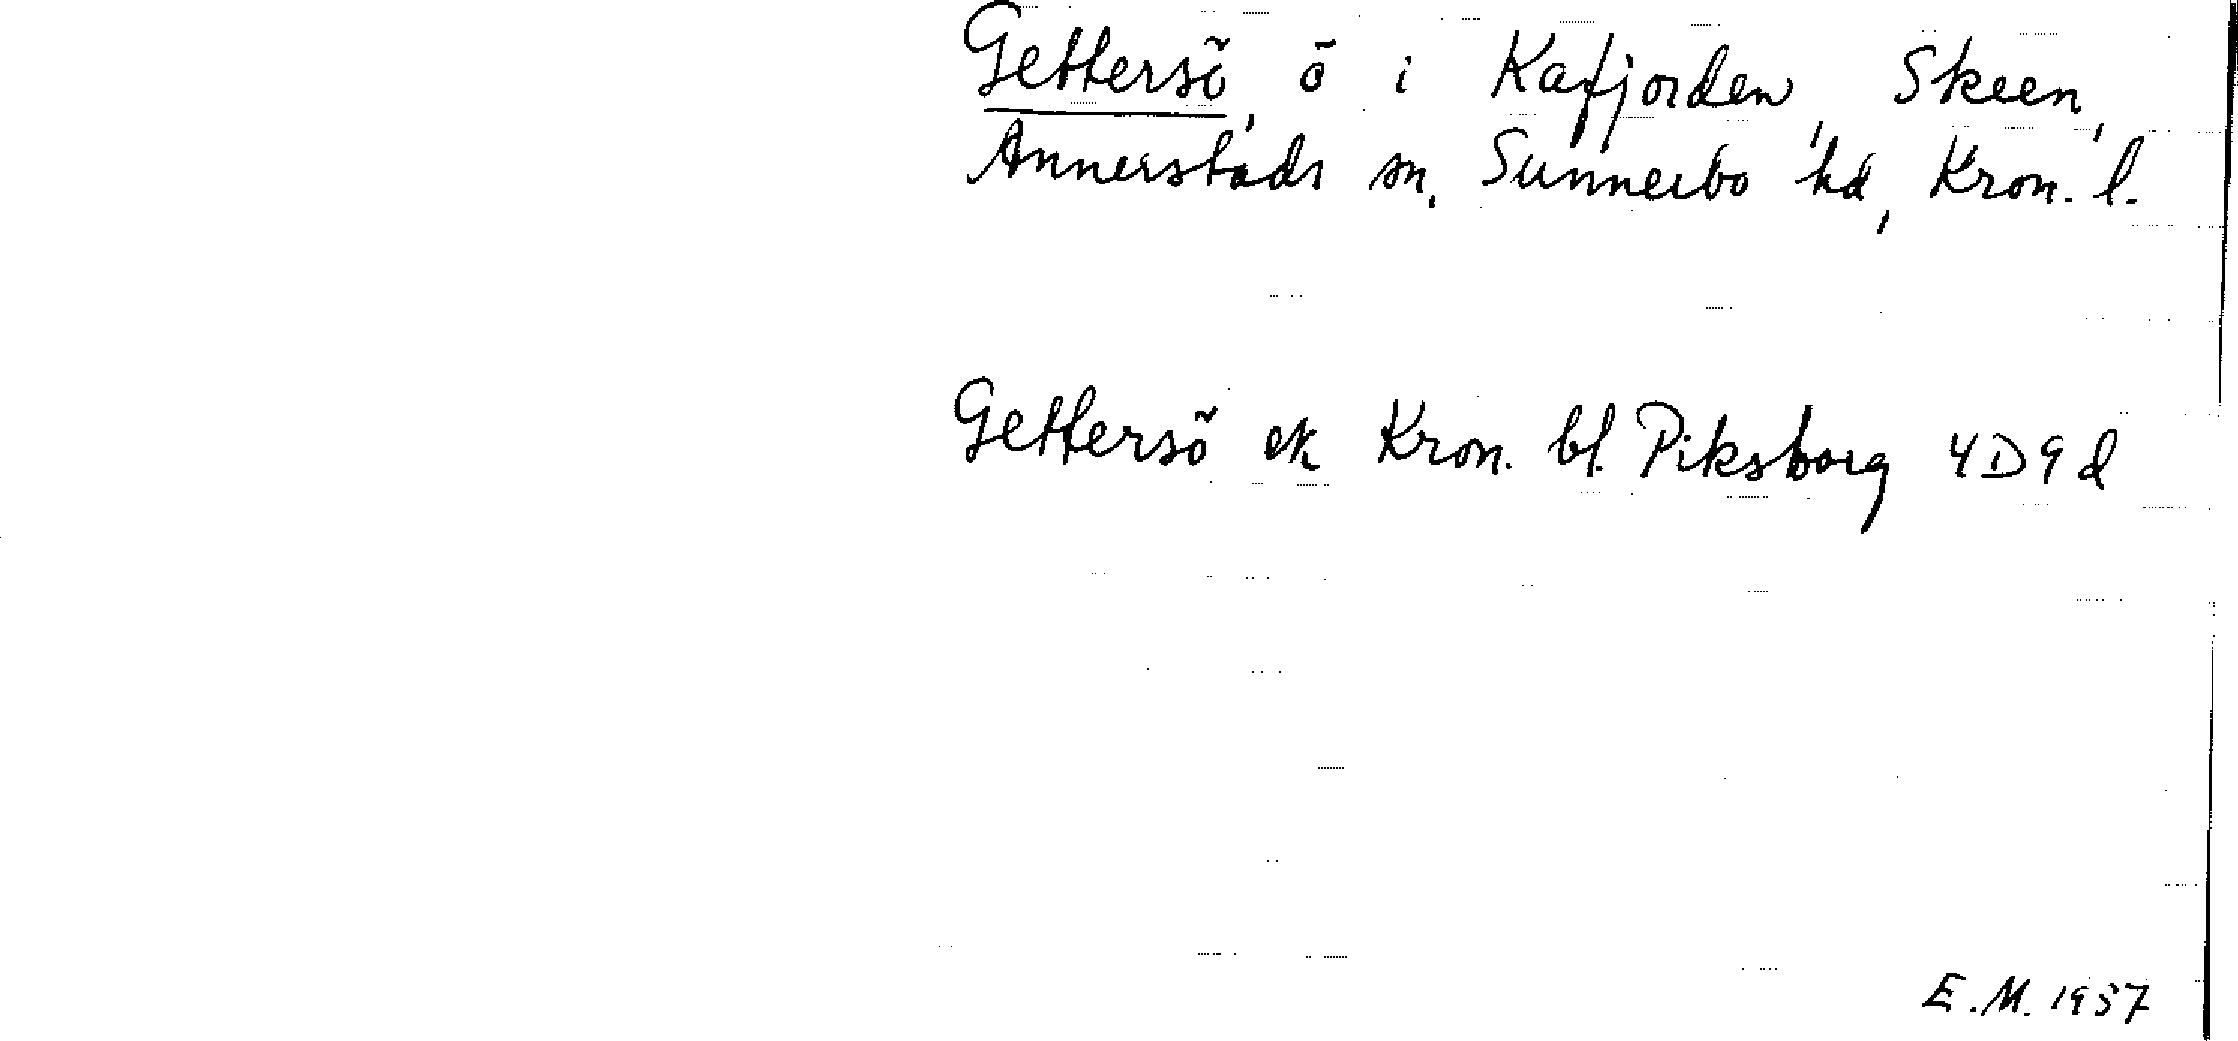 Gettersö, ö i Kafjorden, Skeen,
Annerstads sn, Sunnerbo hd, Kron. l.
Gettersö ek Kron. bl. Piksborg 4D9d
E.M. 1957